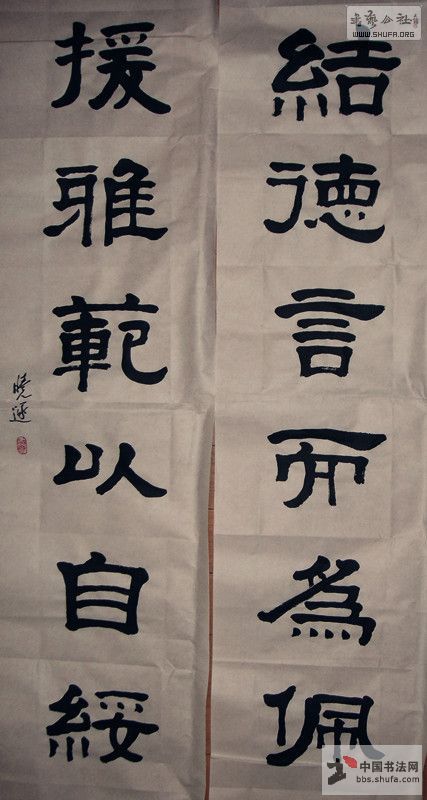 結德言而為佩
援雅範以自綏
曉遜
书艺公社
WWW.SHUFA.ORG
中国书法网
bbs.shufa.com